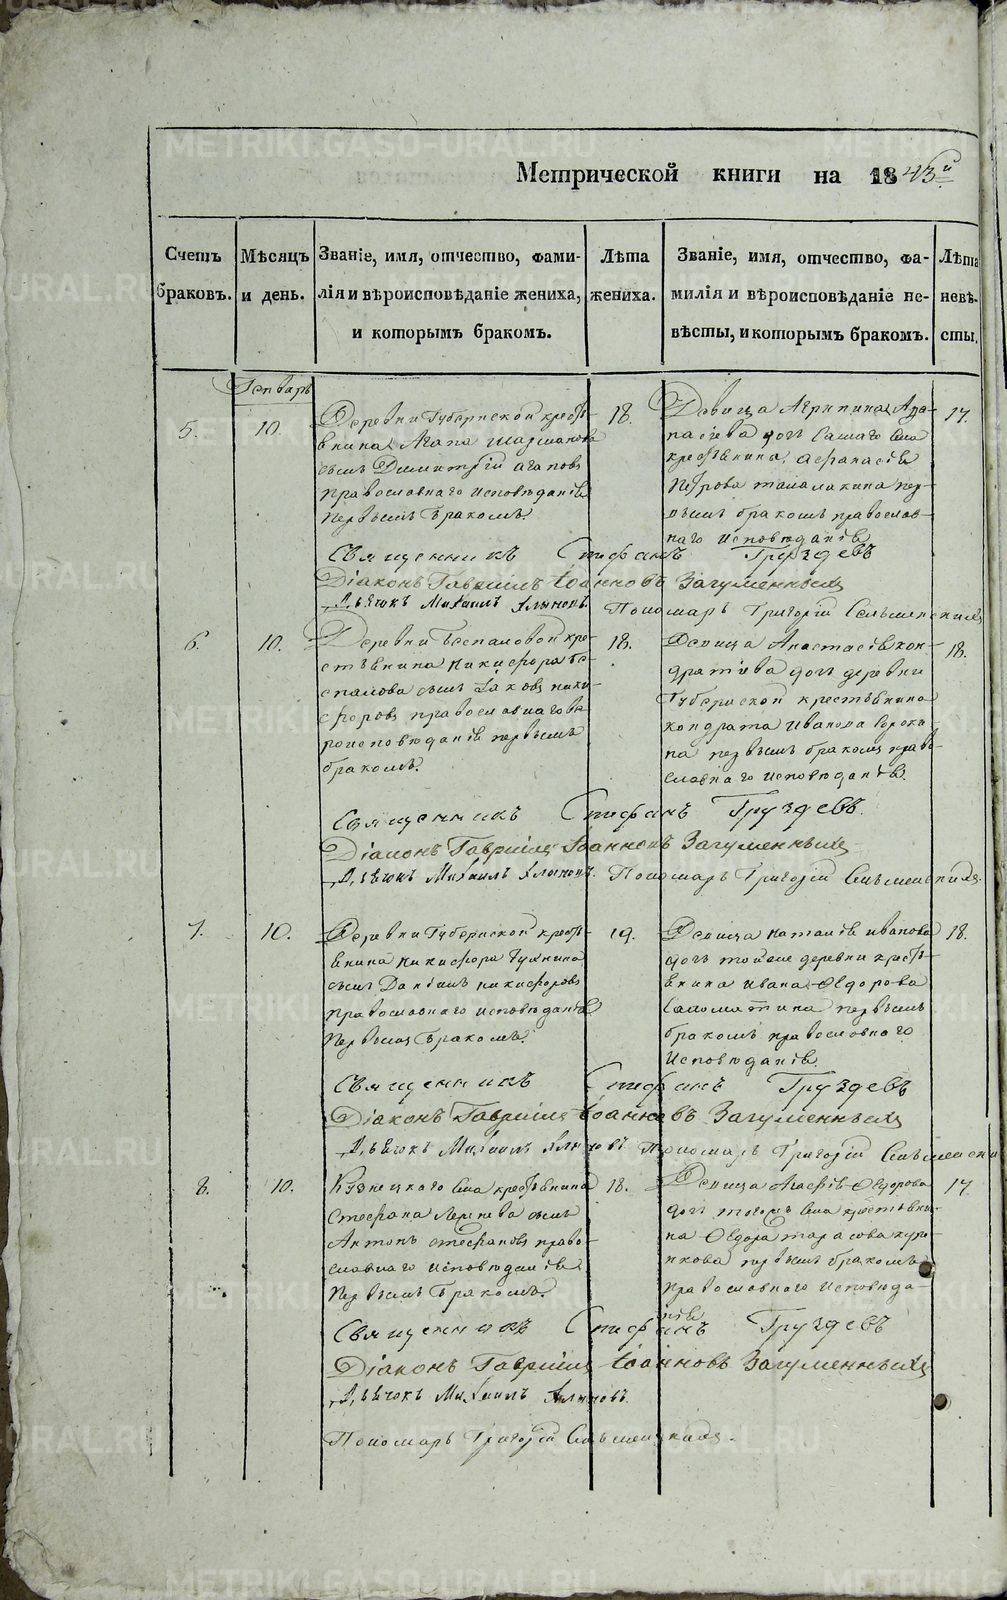 Метрической книги на 1843й
Счетъ браковъ.
Мѣсяцъ и день.
Званіе, имя, отчество, фами-
лія и вѣроисповѣданіе жениха,
и которымъ бракомъ.
Лѣта жениха.
Званіе, имя, отчество, фа-
милія и вѣроисповѣданіе не-
вѣсты, и которымъ бракомъ.
Лѣта невѣ-
сты.
Генварь
5.
10.
Деревни Губернской кресть-
янина Агапа
сынъ Димитрій Агаповъ
православнаго исповѣданія
первымъ бракомъ.
18.
Девица Агрипина Афа-
насіева дочь самаго села
крестьянина Афанасія
Петрова Таламакина пер-
вымъ бракомъ православ-
наго исповѣданія
17.
Священникъ Стефанъ Груздевъ
Діаконъ Гавріилъ Іоанновъ Загуменныхъ
Дьячокъ Михаилъ Пономарь Григорій
6.
10.
Деревни Беспаловой кре-
стьянина Никифора Бе-
спалова сынъ Іаковъ Ники-
форовъ православнаго вѣ-
роисповѣданія первымъ
бракомъ.
18.
Девица Анастасія Кон-
дратіева дочь деревни
Губернской крестьянина
Кондрата Иванова Сороки-
на первымъ бракомъ право-
славнаго исповѣданія.
18.
Священникъ Стефанъ Груздевъ.
Діаконъ Гавріилъ Іоанновъ Загуменныхъ
Дьячокъ Михаилъ Пономарь Григорій
7.
10.
Деревни Губернской кресть-
янина Никифора
сынъ Даніилъ Никифоровъ
православнаго исповѣданія
первымъ бракомъ.
19.
Девица Наталія Иванова
дочь той же деревни кресть-
янина Ивана Ѳедорова
первымъ
бракомъ православнаго
исповѣданія.
18.
Священникъ Стефанъ Груздевъ
Діаконъ Гавріилъ Іоанновъ Загуменныхъ
Дьячокъ Михаилъ Пономарь Григорій
8.
10.
Кузнецкаго села крестьянина
Стефана сынъ
Антонъ Стефановъ право-
славнаго исповѣданія
первымъ бракомъ.
18.
Девица Агафія Ѳедорова
дочь тогожъ села крестьяни-
на Ѳедора Тарасова
первымъ бракомъ
православнаго исповѣда-
нія
17.
Священникъ Стефанъ Груздевъ
Діаконъ Гавріилъ Іоанновъ Загуменныхъ
Дьячокъ Михаилъ
Пономарь Григорій
METRIKI.GASO-URAL.RU